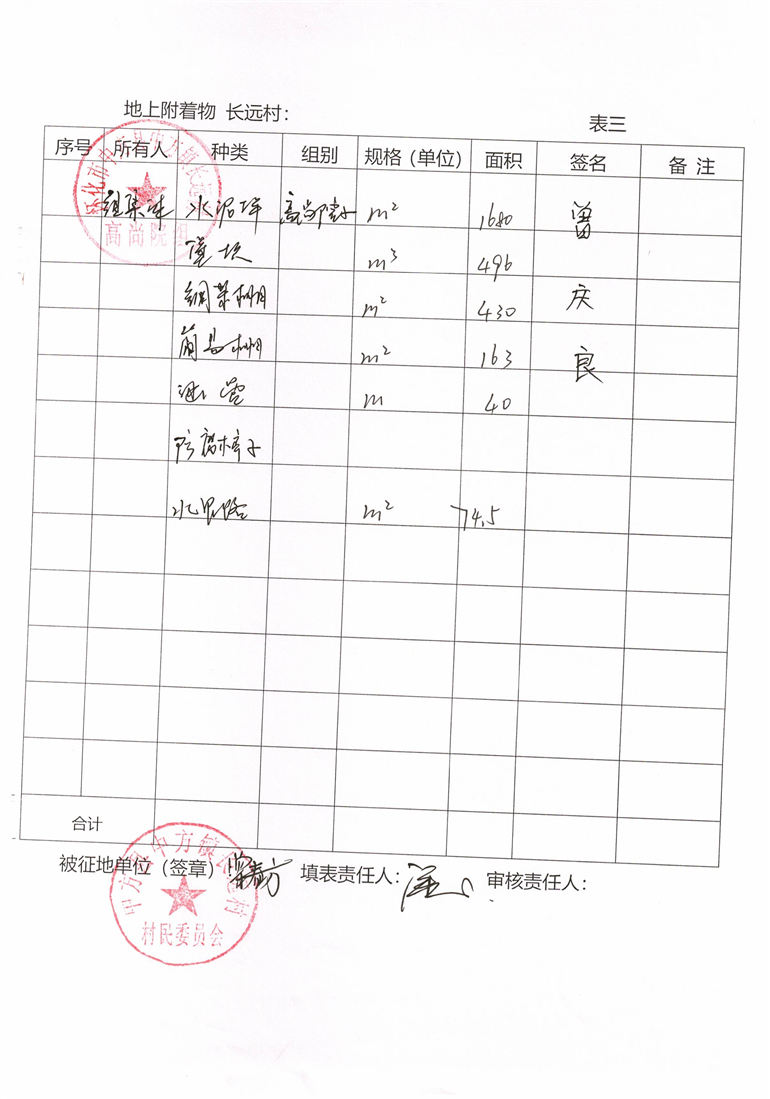 地上附着物 长远村：
表三
序号 所有人 种类 组别 规格（单位） 面积 签名 备 注
组集体 水泥坪 高尚院子 m² 1680 曾
堡坎 m³ 496
钢架棚 m² 430 庆
简易棚 m² 163 良
m 40
防腐木亭子
水泥路 m² 74.5
合计
被征地单位（签章） 填表责任人： 审核责任人：
高尚院组
中方县中方镇长远村
村民委员会